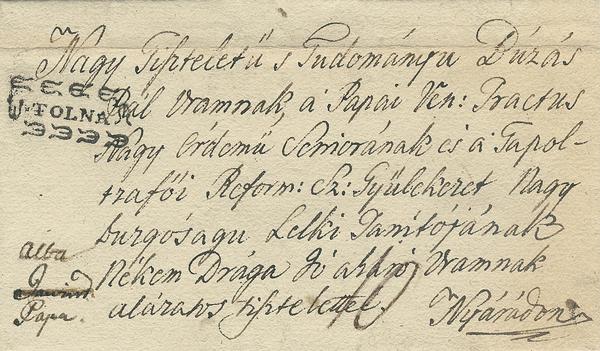 Nagy Tiszteletű s Tudományu Búzás
Pál Uramnak, a Pápai Ven: Tractus
TOLNA
Nagy érdemű Seniorának és a Tapol-
tzafői Reform: Sz: Gyülekezet Nagy
buzgóságu Lelki Tanítojának
Nékem Drága Jó akaró Uramnak
alázatos tisztelettel.
10
Nyárádon
alba
Papa.